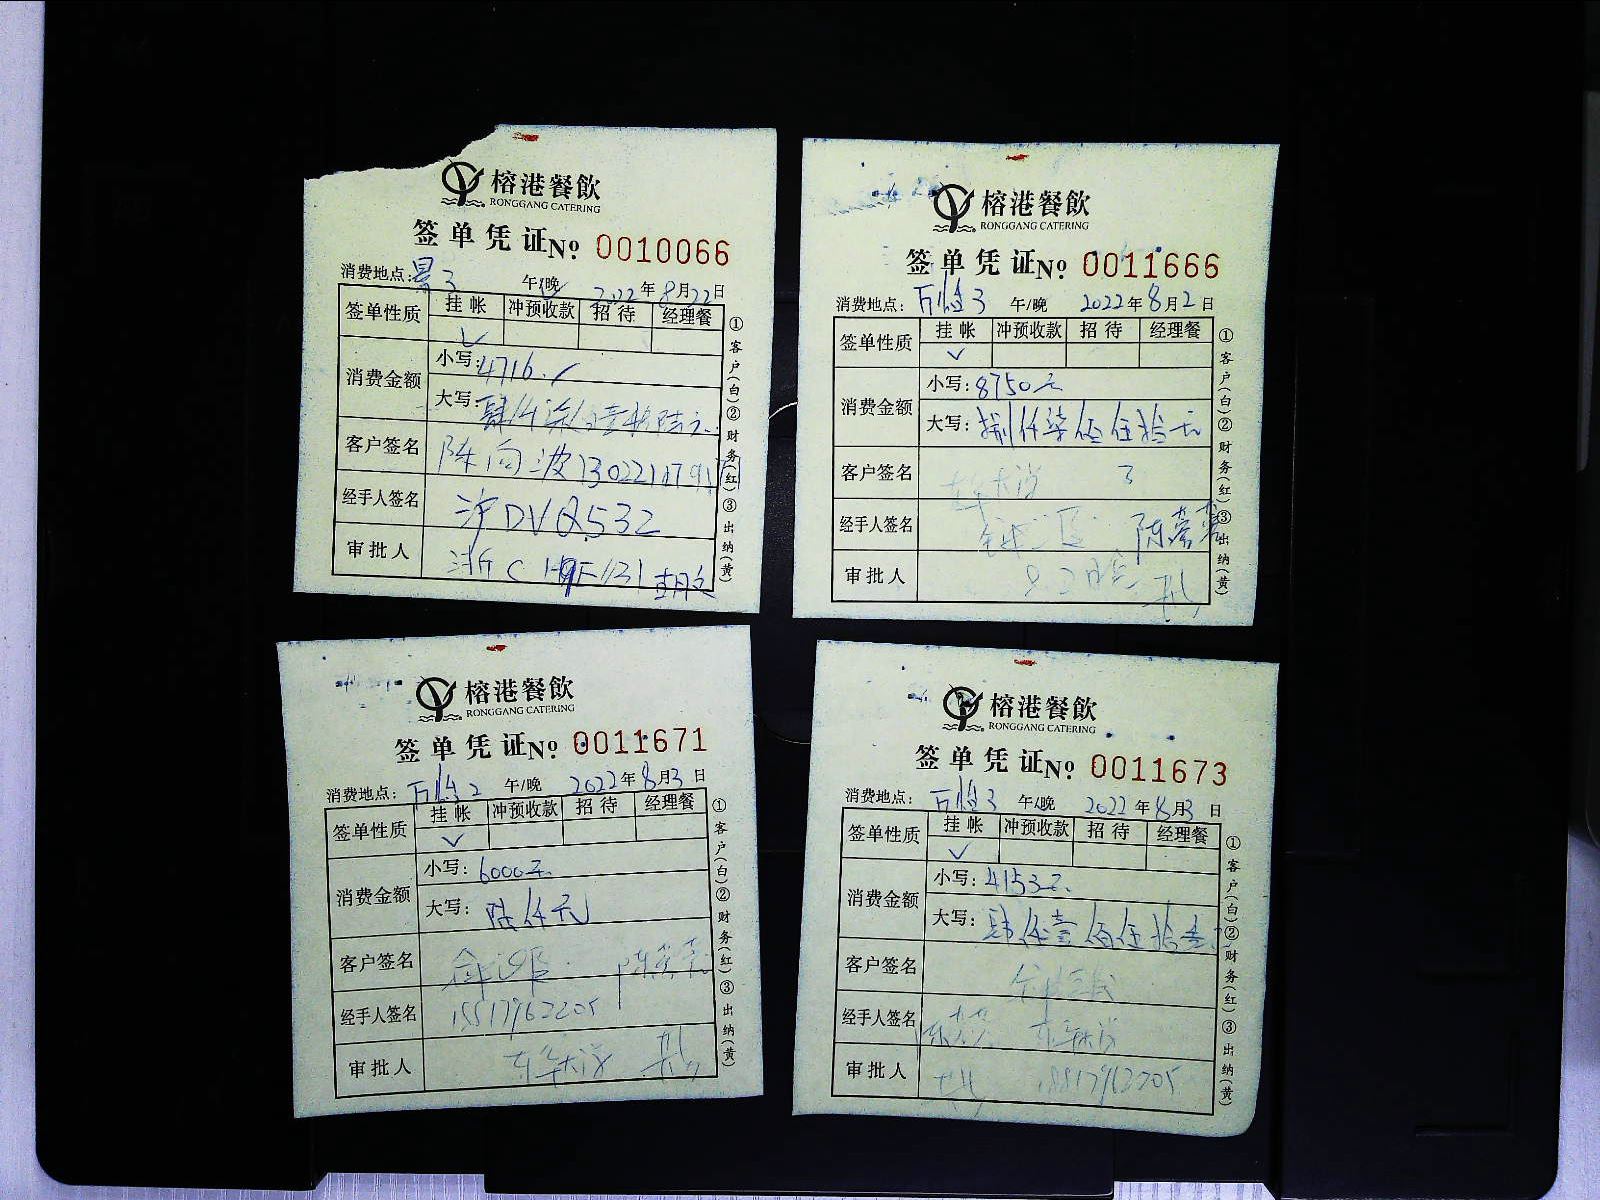 榕港餐飲
RONGGANG CATERING
签单凭证 № 0010066
消费地点: 午/晚 2022年8月22日
签单性质 挂帐 冲预收款 招待 经理餐
✓
消费金额 小写: 4716.
大写: 肆仟柒佰壹拾陆元
客户签名 陈向波
经手人签名 沪DVQ532
审批人 浙C
①客户(白)②财务(红)③出纳(黄)
榕港餐飲
RONGGANG CATERING
签单凭证 № 0011666
消费地点: 3 午/晚 2022年8月2日
签单性质 挂帐 冲预收款 招待 经理餐
✓
消费金额 小写: 8750元
大写: 捌仟柒佰伍拾元
客户签名
经手人签名
审批人
①客户(白)②财务(红)③出纳(黄)
榕港餐飲
RONGGANG CATERING
签单凭证 № 0011671
消费地点: 2 午/晚 2022年8月3日
签单性质 挂帐 冲预收款 招待 经理餐
✓
消费金额 小写: 6000元
大写: 陆仟元
客户签名
经手人签名 15817962205
审批人
①客户(白)②财务(红)③出纳(黄)
榕港餐飲
RONGGANG CATERING
签单凭证 № 0011673
消费地点: 3 午/晚 2022年8月3日
签单性质 挂帐 冲预收款 招待 经理餐
✓
消费金额 小写: 4153元
大写: 肆仟壹佰伍拾叁
客户签名
经手人签名
审批人 15817962205
①客户(白)②财务(红)③出纳(黄)